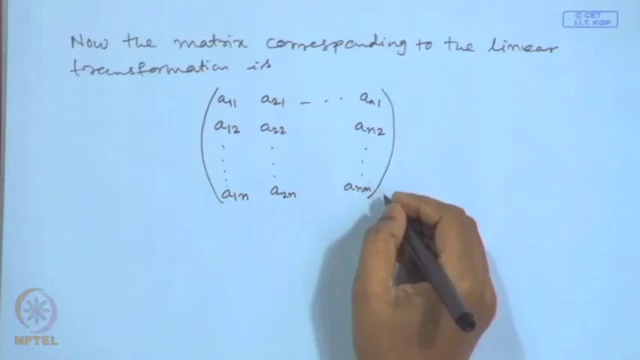 © CET
I.I.T. KGP
Now the matrix corresponding to the linear
transformation is
a11 a21 – ‥ an1
a12 a22 an2
a1n a2n anm
NPTEL